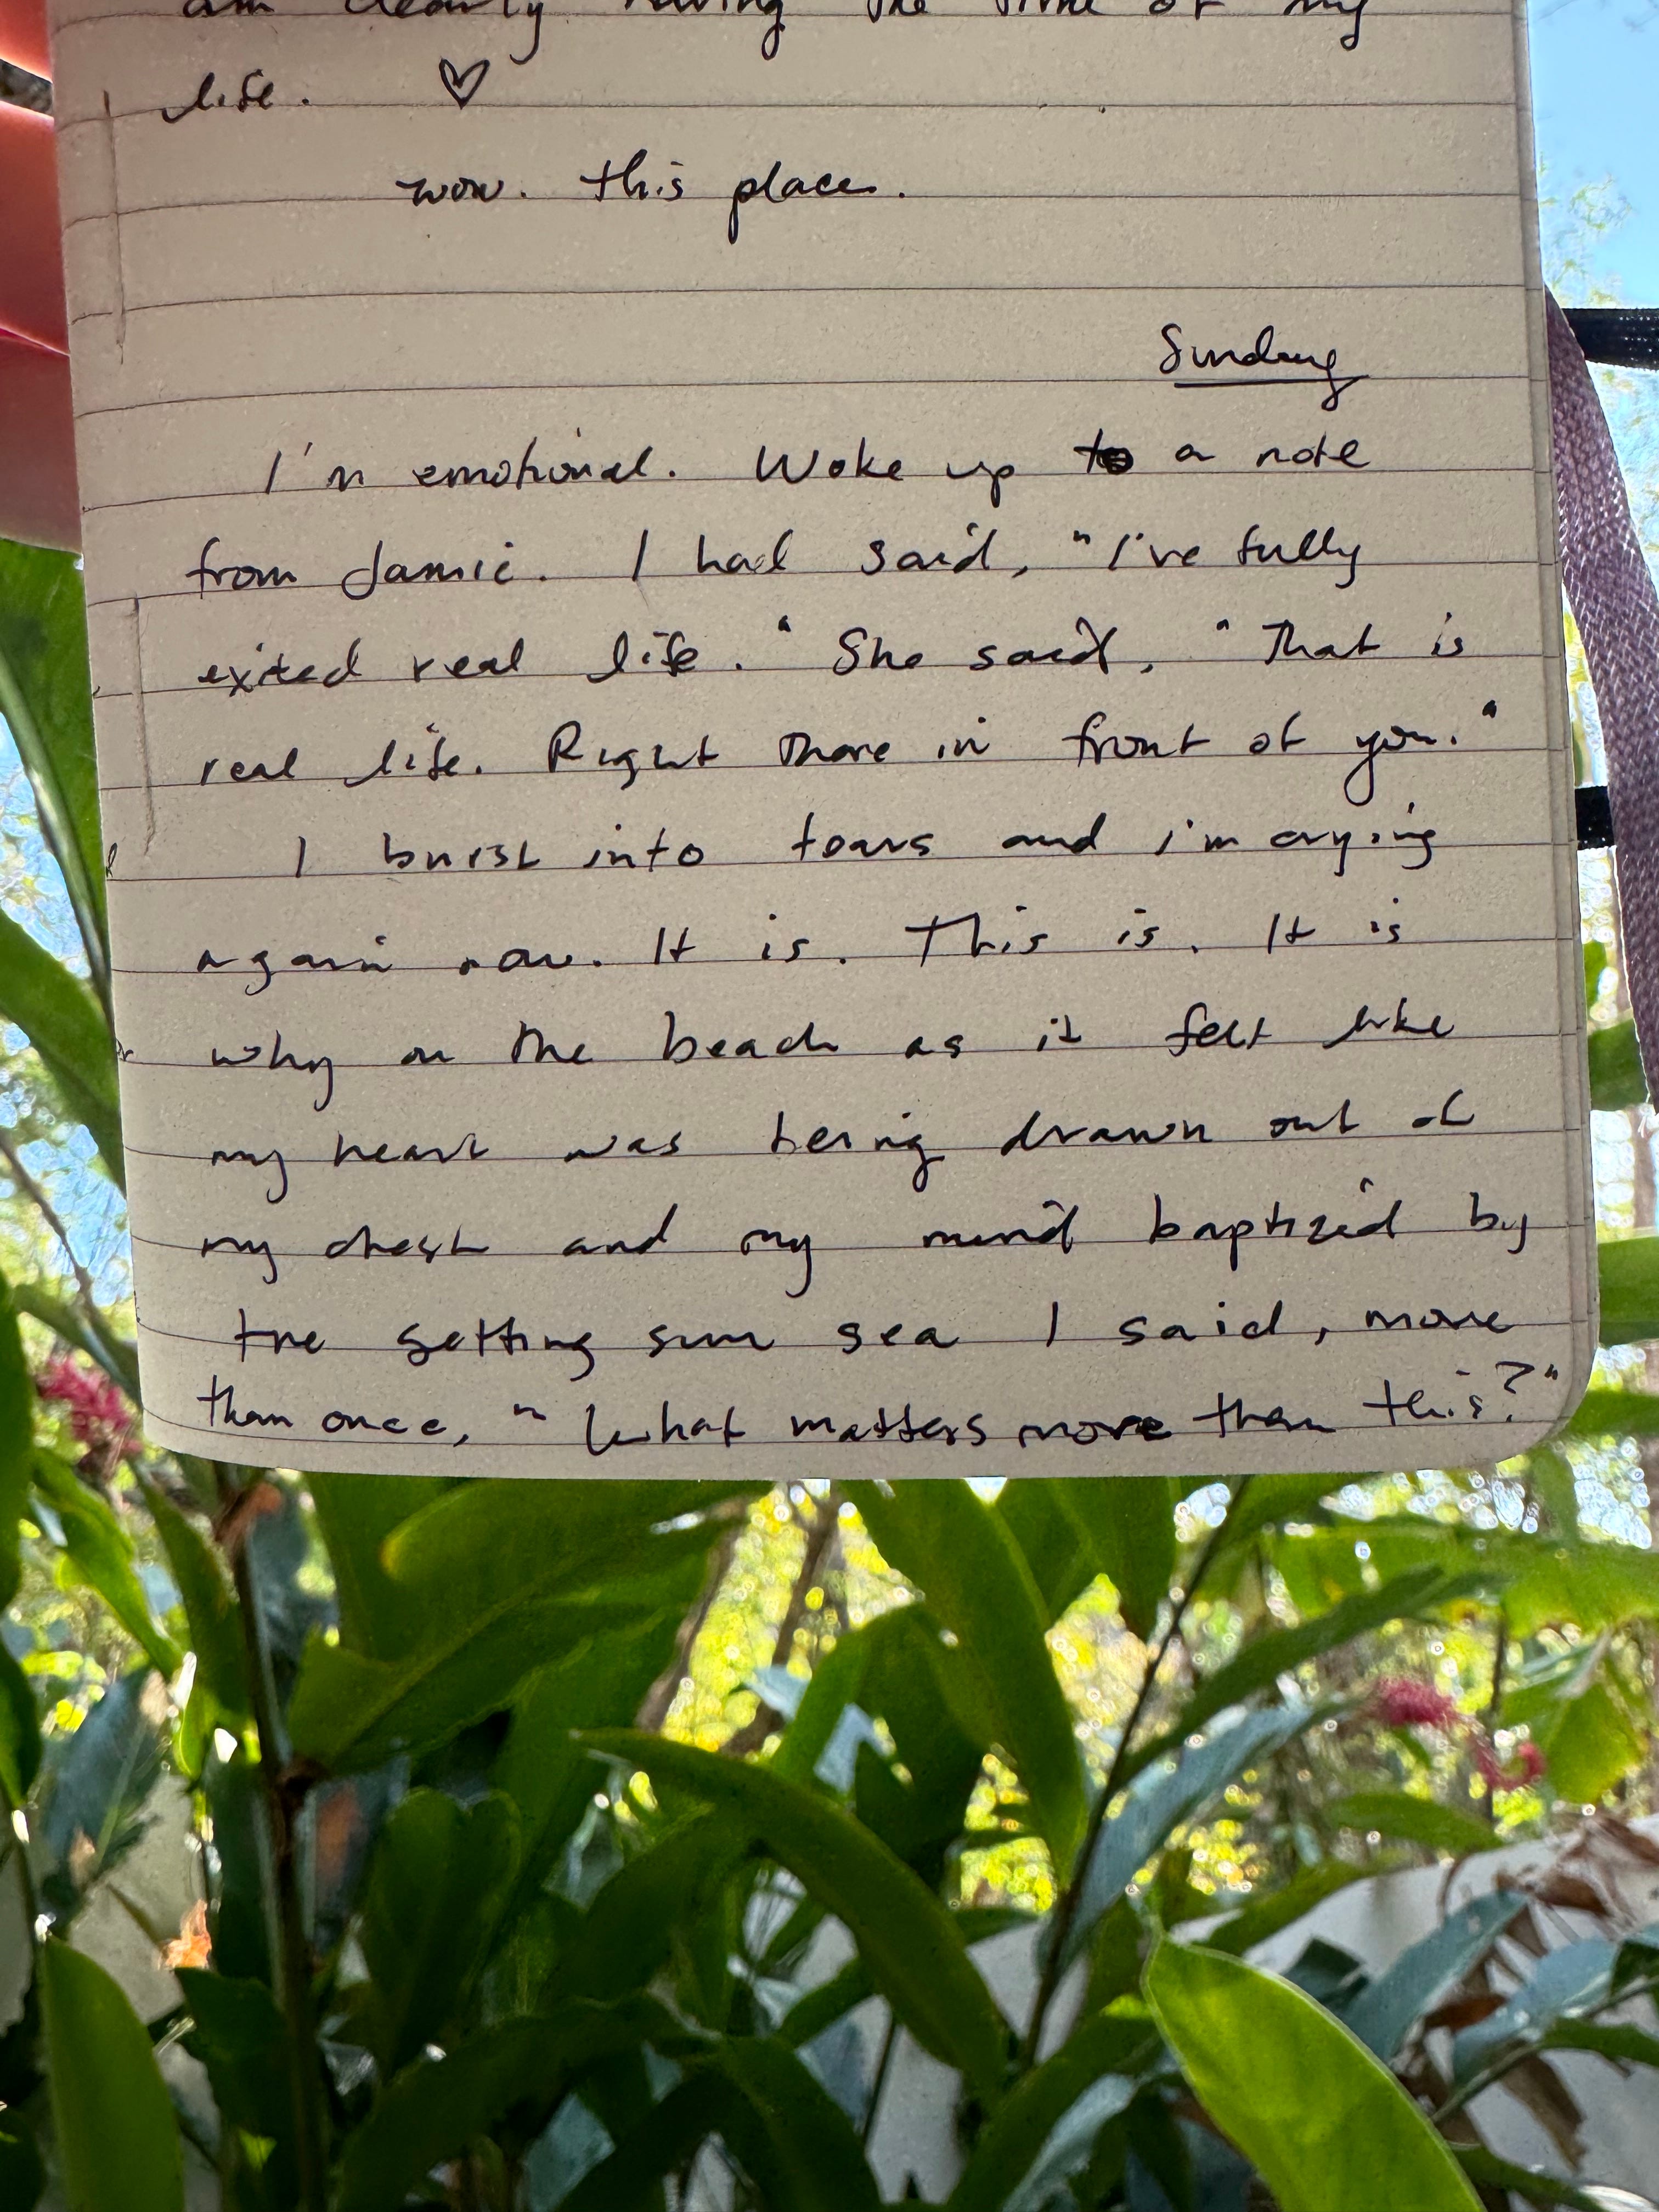 am clearly having the time of my
life. ♡
wow. this place.
Sunday
I'm emotional. Woke up to a note
from Jamie. I had said, "I've fully
exited real life." She said, "That is
real life. Right there in front of you."
I burst into tears and i'm crying
again now. It is. This is. It is
why on the beach as it felt like
my heart was being drawn out of
my chest and my mind baptized by
the setting sun sea I said, more
than once, "What matters more than this?"